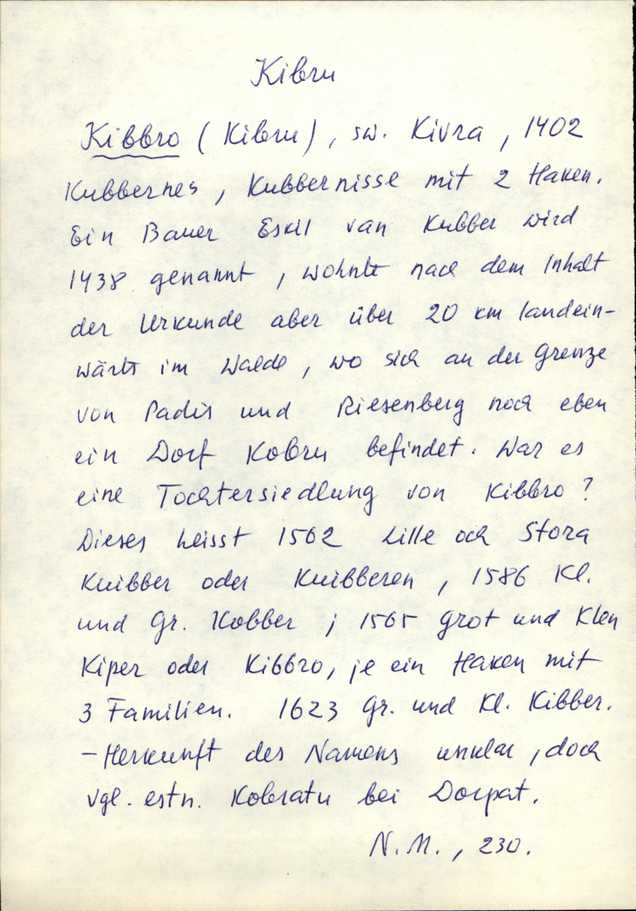 Kibru
Kibbro (Kibru), sw. Kivra, 1402
Kubbernes, Kubbernisse mit 2 Haken.
Ein Bauer Eskil van Kubber wird
1438 genannt, wohnte nach dem Inhalt
der Urkunde aber über 20 km landein-
wärts im Walde, wo sich an der Grenze
von Padis und Riesenberg noch eben
ein Dorf Kobru befindet. War es
eine Tochtersiedlung von Kibbro?
Dieses heisst 1562 Lille och Stora
Knibber oder Knibberen, 1586 Kl.
und Gr. Kobber; 1565 Grot und Klen
Kiper oder Kibbro, je ein Haken mit
3 Familien. 1623 Gr. und Kl. Kibber.
- Herkunft des Namens unklar, doch
vgl. estn. Kobratu bei Dorpat.
N.M., 230.